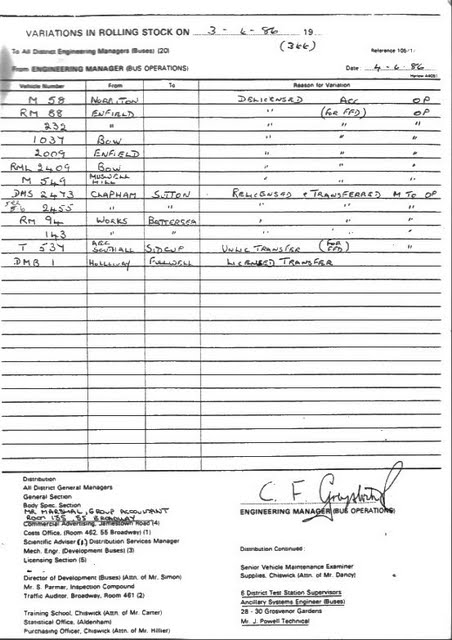 VARIATIONS IN ROLLING STOCK ON 3-6-86 19
(366)
To All District Engineering Managers (Buses) (20)
From ENGINEERING MANAGER (BUS OPERATIONS)
Date: 4-6-86
Vehicle Number From To Reason for Variation
M 58 NORBITON DELICENSED ACC OP
RM 88 ENFIELD " (FOR FFD) OP
232 " " " "
1037 BOW " " "
2009 ENFIELD " " "
RML 2409 BOW " " "
M 549 MUSWELL HILL " " "
DMS 2473 CLAPHAM SUTTON RELICENSED & TRANSFERRED M TO OP
2455 " " " " "
RM 94 WORKS BATTERSEA " " "
143 " " " " "
T 537 AEC SOUTHALL SIDCUP UNLIC TRANSFER (FOR FFD) "
DMB 1 HOLLOWAY FULWELL LICENSED TRANSFER
Distribution
All District General Managers
General Section
Body Spec. Section
MR MARSHAL, GROUP ACCOUNTANT
ROOM 135, 55 BROADWAY
Commercial Advertising, Jamestown Road (4)
Costs Office, (Room 462, 55 Broadway) (1)
Scientific Adviser (s) Distribution Services Manager
Mech. Engr. (Development Buses) (3)
Licensing Section (5)
Director of Development (Buses) (Attn. of Mr. Simon)
Mr. S. Parmar, Inspection Compound
Traffic Auditor, Broadway, Room 461 (2)
Training School, Chiswick (Attn. of Mr. Carter)
Statistical Office, (Aldenham)
Purchasing Officer, Chiswick (Attn. of Mr. Hillier)
C. F.
ENGINEERING MANAGER (BUS OPERATIONS)
Distribution Continued:
Senior Vehicle Maintenance Examiner
Supplies, Chiswick (Attn. of Mr. Dancy)
6 District Test Station Supervisors
Ancillary Systems Engineer (Buses)
28 - 30 Grosvenor Gardens
Mr. J. Powell Technical